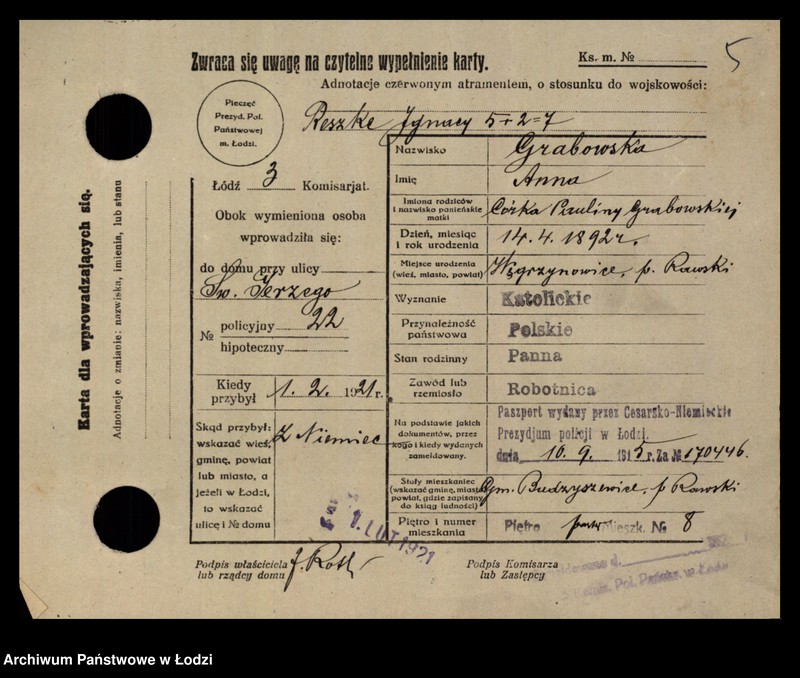 Zwraca się uwagę na czytelne wypełnienie karty.
Ks. m. №
5
Adnotacje czerwonym atramentem, o stosunku do wojskowości:
Pieczęć
Prezyd. Pol.
Państwowej
m. Łodzi.
Reszke Ignacy 5+2=7
Łódź 3 Komisarjat.
Obok wymieniona osoba
wprowadziła się:
do domu przy ulicy
Św. Jerzego
№ policyjny 22
hipoteczny
Kiedy przybył 1. 2. 1921 r.
Skąd przybył:
wskazać wieś,
gminę, powiat
lub miasto, a
jeżeli w Łodzi,
to wskazać
ulicę i № domu
Z Niemiec
Nazwisko Grabowska
Imię Anna
Imiona rodziców
i nazwisko panieńskie
matki
Córka Pauliny Grabowskiej
Dzień, miesiąc
i rok urodzenia
14. 4. 1892 r.
Miejsce urodzenia
(wieś, miasto, powiat)
Węgrzynowice, p. Rawski
Wyznanie Katolickie
Przynależność
państwowa
Polskie
Stan rodzinny Panna
Zawód lub
rzemiosło
Robotnica
Na podstawie jakich
dokumentów, przez
kogo i kiedy wydanych
zameldowany.
Paszport wydany przez Cesarsko-Niemieckie
Prezydjum policji w Łodzi.
dnia 10. 9. 1915 r. Za № 170446.
Stały mieszkaniec
(wskazać gminę, miasto
powiat, gdzie zapisany
do ksiąg ludności)
Gm. Budzyszewice, p. Rawski
Piętro i numer
mieszkania
Piętro Mieszk. № 8
1. LUT 1921
Podpis właściciela
lub rządcy domu
J. Roth
Podpis Komisarza
lub Zastępcy
Pol. Państw. w Łodzi
Karta dla wprowadzających się.
Adnotacje o zmianie: nazwiska, imienia, lub stanu
Archiwum Państwowe w Łodzi